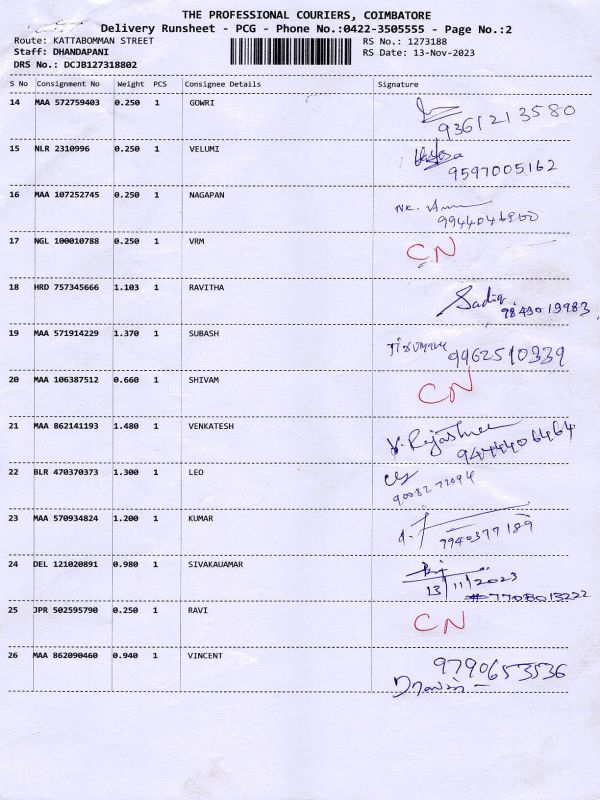 THE PROFESSIONAL COURIERS, COIMBATORE
Delivery Runsheet - PCG - Phone No.:0422-3505555 - Page No.:2
Route: KATTABOMMAN STREET RS No.: 1273188
Staff: DHANDAPANI RS Date: 13-Nov-2023
DRS No.: DCJB127318802
S No Consignment No Weight PCS Consignee Details Signature
14 MAA 572759403 0.250 1 GOWRI
9361213580
15 NLR 2310996 0.250 1 VELUMI
9597005162
16 MAA 107252745 0.250 1 NAGAPAN
9944046900
17 NGL 100010788 0.250 1 VRM CN
18 HRD 757345666 1.103 1 RAVITHA Sadiq
9849019983
19 MAA 571914229 1.370 1 SUBASH
9962510339
20 MAA 106387512 0.660 1 SHIVAM CN
21 MAA 862141193 1.480 1 VENKATESH V. Rajashree
9444406464
22 BLR 470370373 1.300 1 LEO
9008272094
23 MAA 570934824 1.200 1 KUMAR
7940377189
24 DEL 121020891 0.980 1 SIVAKAUAMAR
13/11/2023
7708013222
25 JPR 502595790 0.250 1 RAVI CN
26 MAA 862090460 0.940 1 VINCENT 9790653536